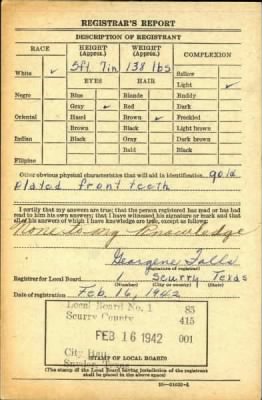 REGISTRAR'S REPORT
DESCRIPTION OF REGISTRANT
RACE HEIGHT (Approx.) WEIGHT (Approx.) COMPLEXION
5ft 7in 138 lbs
White ✓ EYES HAIR Sallow
Light ✓
Negro Blue Blonde Ruddy
Gray ✓ Red Dark
Oriental Hazel Brown ✓ Freckled
Brown Black Light brown
Indian Black Gray Dark brown
Bald Black
Filipino
Other obvious physical characteristics that will aid in identification gold
plated front teeth
I certify that my answers are true; that the person registered has read or has had
read to him his own answers; that I have witnessed his signature or mark and that
all of his answers of which I have knowledge are true, except as follows:
None to my Knowledge
Georgene Falls
(Signature of registrar)
Registrar for Local Board 1 Scurry Texas
(Number) (City or county) (State)
Date of registration Feb. 16, 1942
Local Board No. 1 83
Scurry County 415
FEB 16 1942 001
City Hall
Snyder, Texas
STAMP OF LOCAL BOARD
(The stamp of the Local Board having jurisdiction of the registrant
shall be placed in the above space)